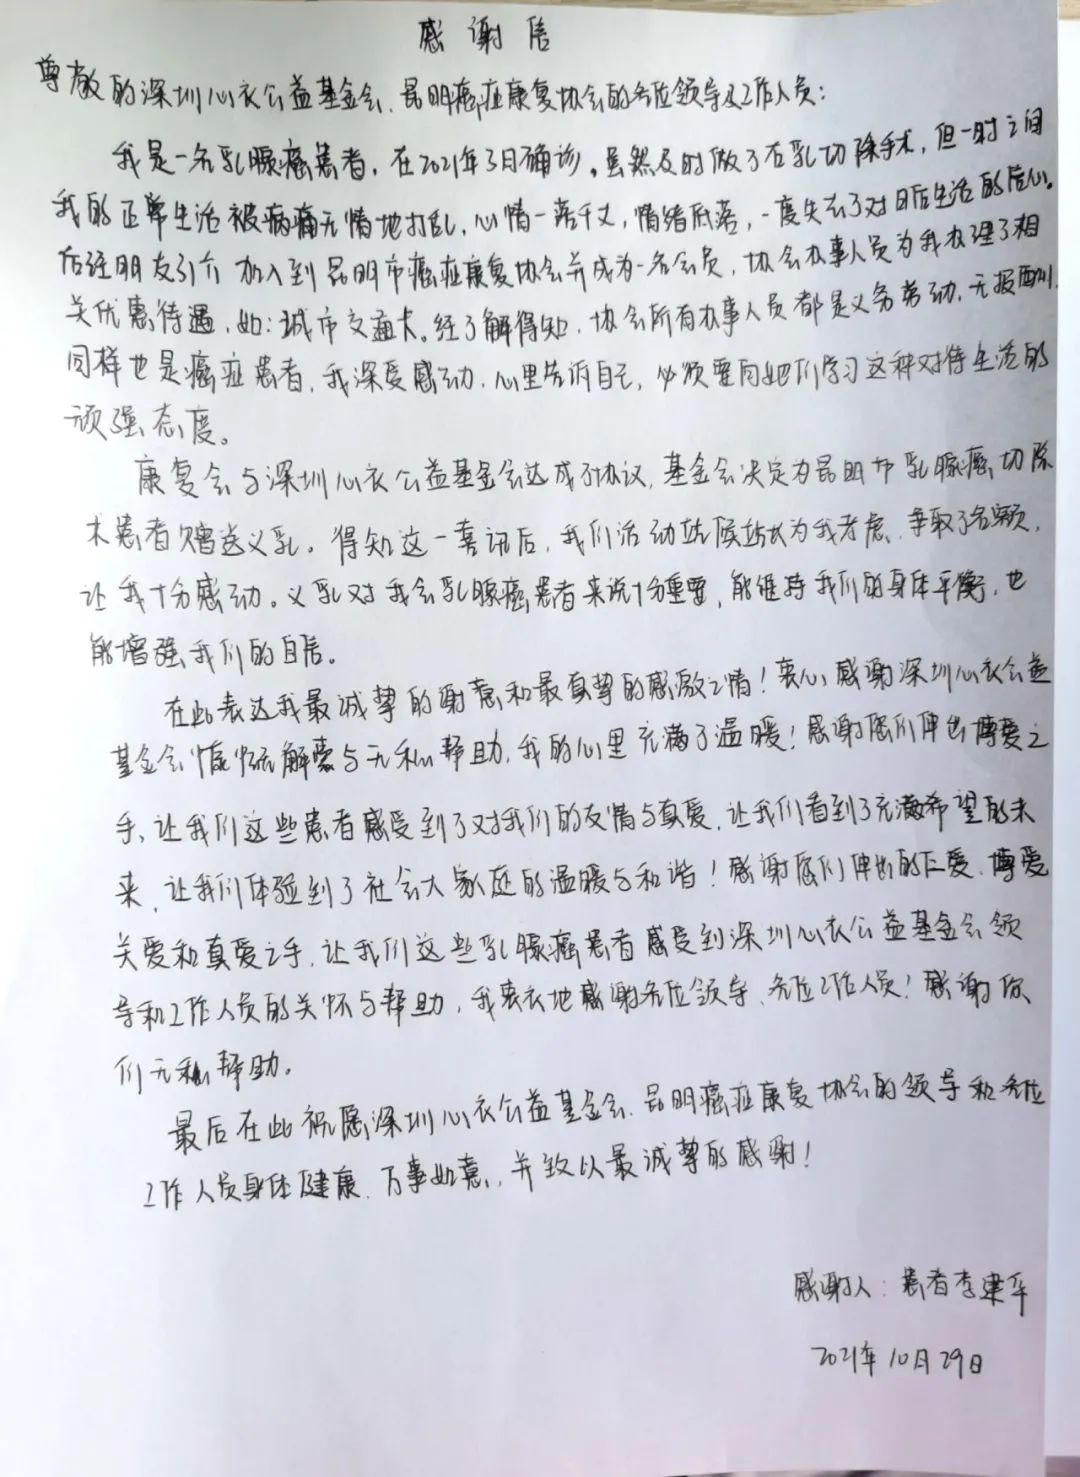 感谢信
尊敬的深圳心衣公益基金会、昆明癌症康复协会的各位领导及工作人员：
我是一名乳腺癌患者，在2021年3月确诊。虽然及时做了右乳切除手术，但一时之间
我的正常生活被病痛无情地打乱，心情一落千丈，情绪低落，一度失去了对日后生活的信心。
后经朋友引介加入到昆明市癌症康复协会并成为一名会员，协会办事人员为我办理了相
关优惠待遇，如：城市交通卡。经了解得知，协会所有办事人员都是义务劳动，无报酬，
同样也是癌症患者，我深受感动，心里告诉自己，必须要向她们学习这种对待生活的
顽强态度。
康复会与深圳心衣公益基金会达成了协议，基金会决定为昆明市乳腺癌切除
术患者赠送义乳。得知这一喜讯后，我们活动站侯站长为我考虑，争取了名额，
让我十分感动。义乳对我会乳腺癌患者来说十分重要，能维持我们的身体平衡，也
能增强我们的自信。
在此表达我最诚挚的谢意和最真挚的感激之情！衷心感谢深圳心衣公益
基金会慷慨解囊与无私帮助，我的心里充满了温暖！感谢您们伸出博爱之
手，让我们这些患者感受到了对我们的友情与真爱，让我们看到了充满希望的未
来，让我们体验到了社会大家庭的温暖与和谐！感谢您们伸出的仁爱、博爱
关爱和真爱之手，让我们这些乳腺癌患者感受到深圳心衣公益基金会领
导和工作人员的关怀与帮助，我衷衣地感谢各位领导、各位工作人员！感谢你
们无私帮助。
最后在此祝愿深圳心衣公益基金会、昆明癌症康复协会的领导和各位
工作人员身体健康、万事如意，并致以最诚挚的感谢！
感谢人：患者李建华
2021年10月29日